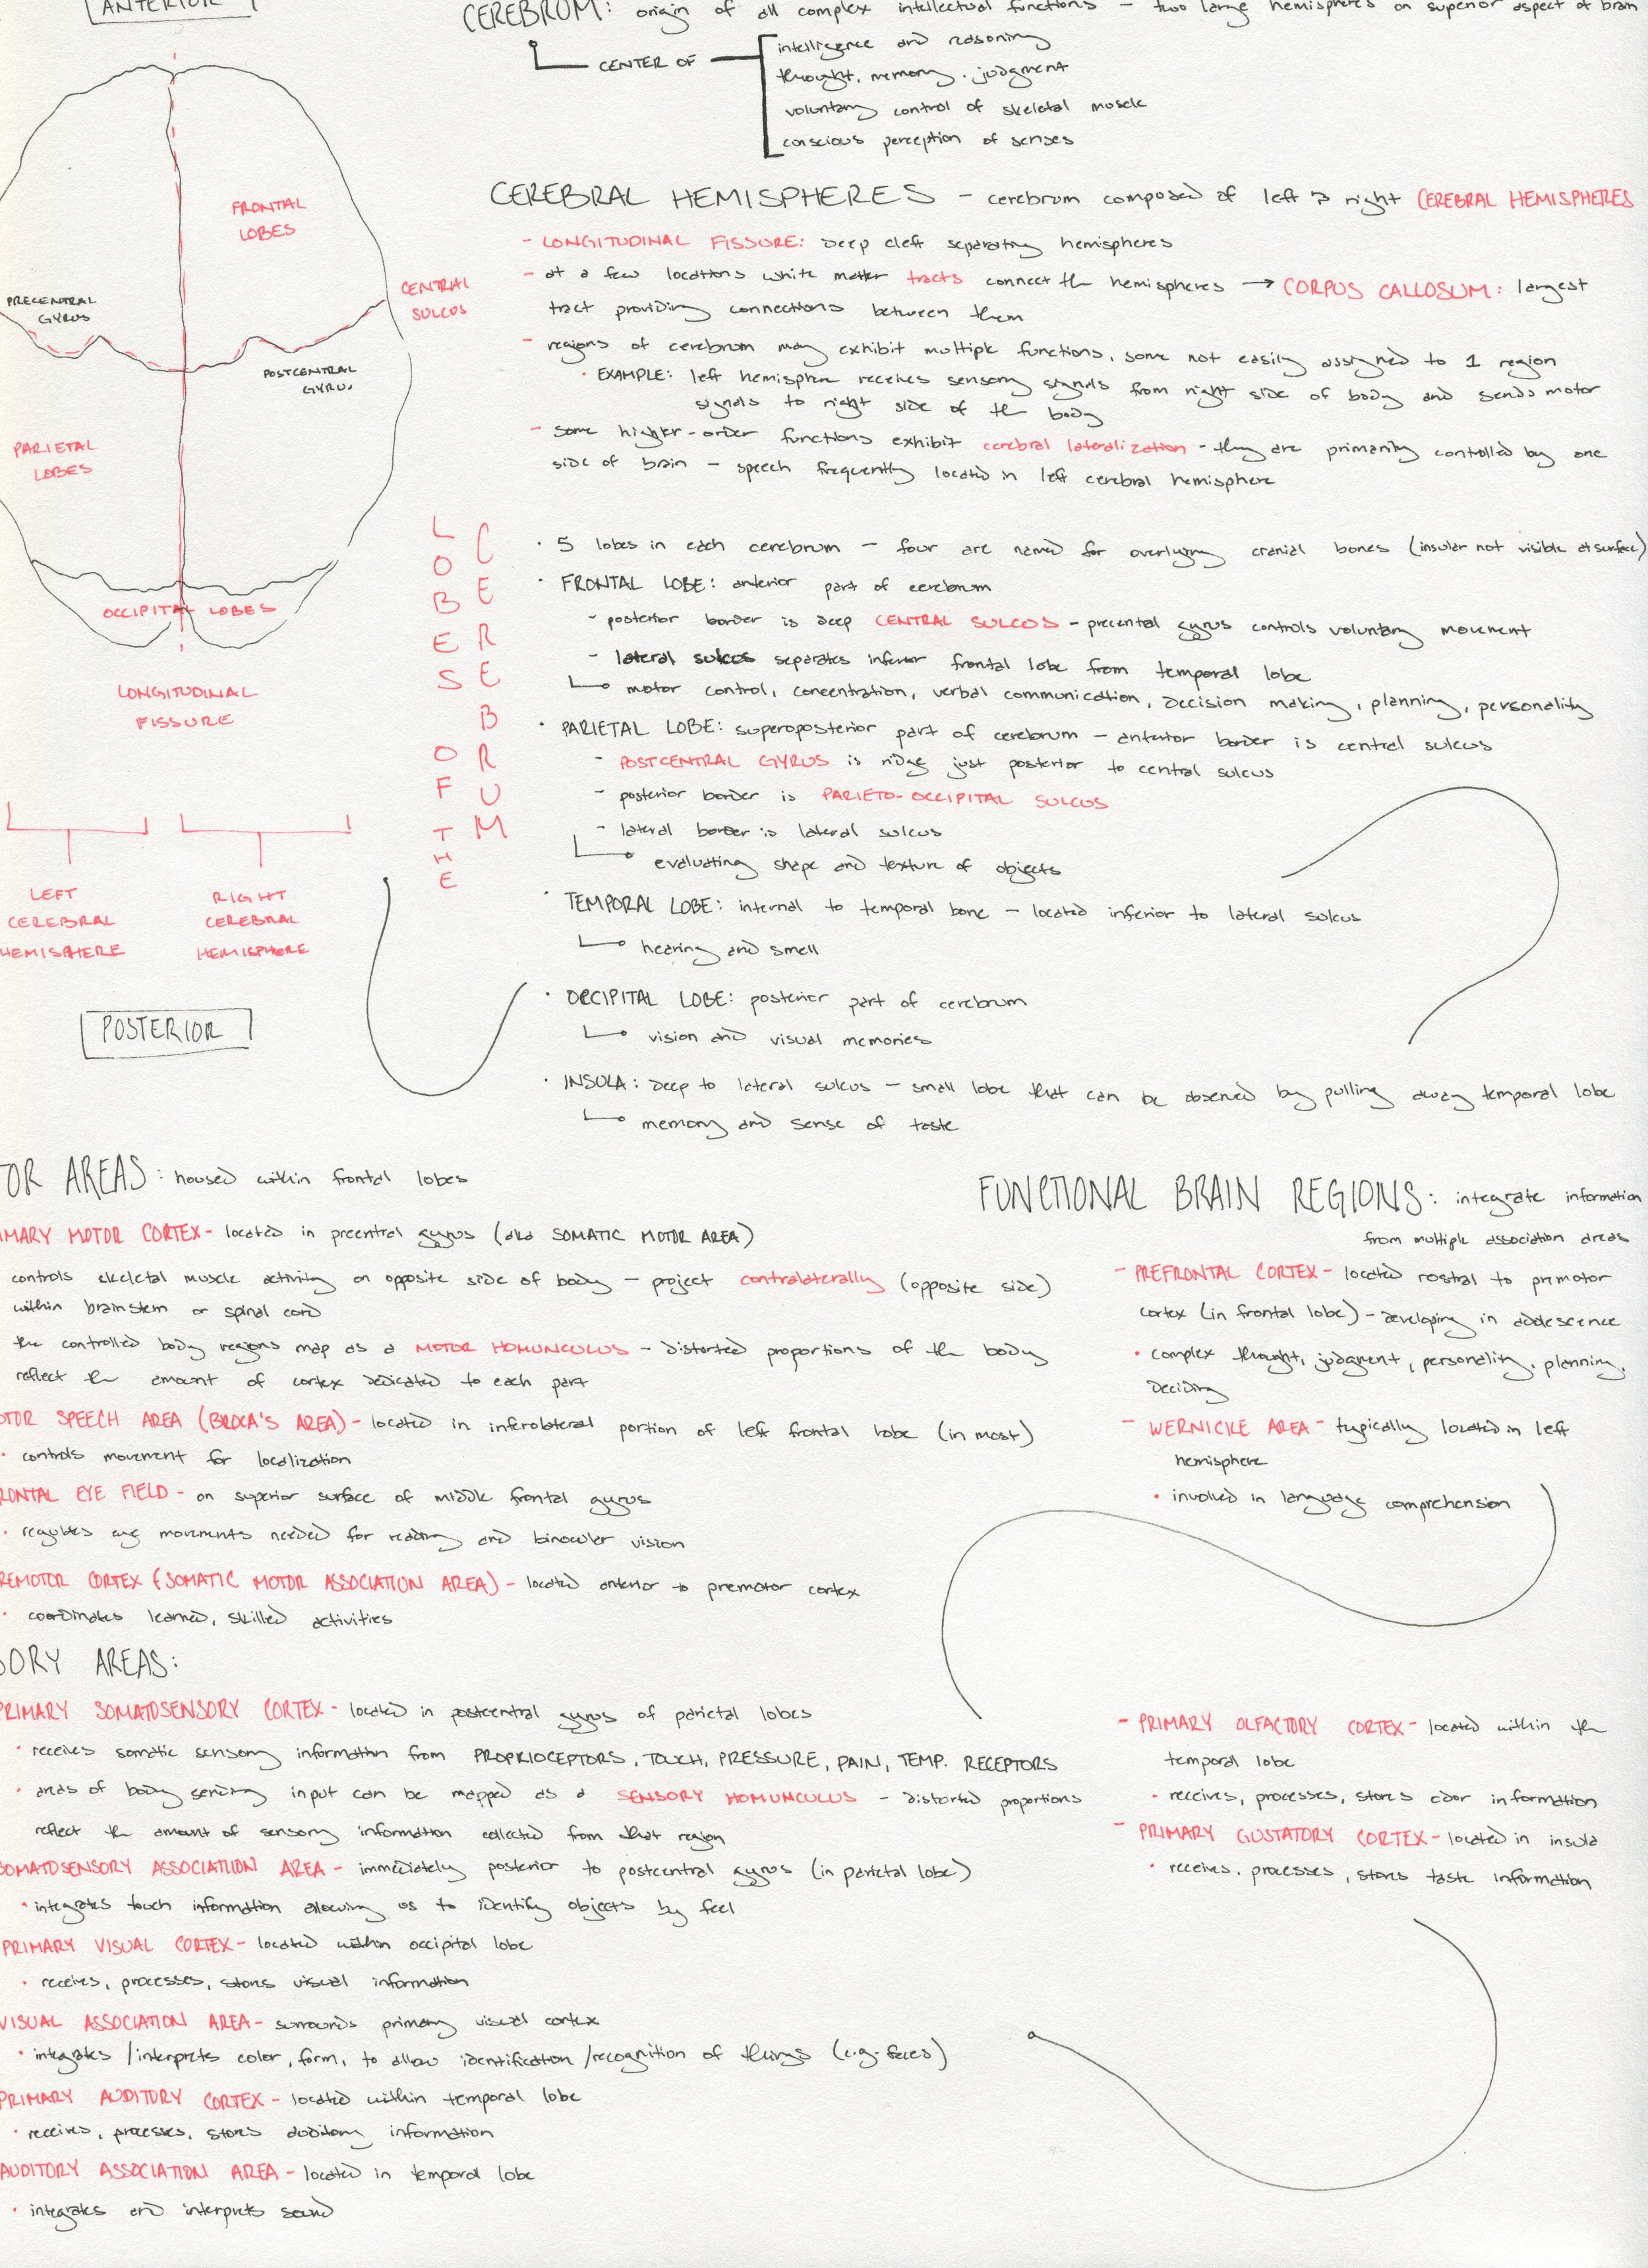 ANTERIOR
FRONTAL
LOBES
PRECENTRAL
GYRUS
CENTRAL
SULCUS
POSTCENTRAL
GYRUS
PARIETAL
LOBES
OCCIPITAL LOBES
LONGITUDINAL
FISSURE
LEFT
CEREBRAL
HEMISPHERE
RIGHT
CEREBRAL
HEMISPHERE
POSTERIOR
CEREBRUM: origin of all complex intellectual functions - two large hemispheres on superior aspect of brain
CENTER OF
intelligence and reasoning
thought, memory, judgment
voluntary control of skeletal muscle
conscious perception of senses
CEREBRAL HEMISPHERES - cerebrum composed of left & right CEREBRAL HEMISPHERES
- LONGITUDINAL FISSURE: deep cleft separating hemispheres
- at a few locations white matter tracts connect the hemispheres → CORPUS CALLOSUM: largest
tract providing connections between them
- regions of cerebrum may exhibit multiple functions, some not easily assigned to 1 region
• EXAMPLE: left hemisphere receives sensory signals from right side of body and sends motor
signals to right side of the body
- some higher-order functions exhibit cerebral lateralization - they are primarily controlled by one
side of brain - speech frequently located in left cerebral hemisphere
LOBES OF THE
CEREBRUM
• 5 lobes in each cerebrum - four are named for overlying cranial bones (insular not visible at surface)
• FRONTAL LOBE: anterior part of cerebrum
- posterior border is deep CENTRAL SULCUS - precental gyrus controls voluntary movement
- lateral sulcus separates inferior frontal lobe from temporal lobe
motor control, concentration, verbal communication, decision making, planning, personality
• PARIETAL LOBE: superoposterior part of cerebrum - anterior border is central sulcus
- POSTCENTRAL GYRUS is ridge just posterior to central sulcus
- posterior border is PARIETO-OCCIPITAL SULCUS
- lateral border is lateral sulcus
evaluating shape and texture of objects
• TEMPORAL LOBE: internal to temporal bone - located inferior to lateral sulcus
hearing and smell
• OCCIPITAL LOBE: posterior part of cerebrum
vision and visual memories
• INSULA: deep to lateral sulcus - small lobe that can be observed by pulling away temporal lobe
memory and sense of taste
TOR AREAS: housed within frontal lobes
IMARY MOTOR CORTEX - located in precentral gyrus (aka SOMATIC MOTOR AREA)
controls skeletal muscle activity on opposite side of body - project contralaterally (opposite side)
within brainstem or spinal cord
the controlled body regions map as a MOTOR HOMUNCULUS - distorted proportions of the body
reflect the amount of cortex dedicated to each part
OTOR SPEECH AREA (BROCA'S AREA) - located in inferolateral portion of left frontal lobe (in most)
• controls movement for localization
RONTAL EYE FIELD - on superior surface of middle frontal gyrus
• regulates eye movements needed for reading and binocular vision
REMOTOR CORTEX (SOMATIC MOTOR ASSOCIATION AREA) - located anterior to premotor cortex
• coordinates learned, skilled activities
SORY AREAS:
PRIMARY SOMATOSENSORY CORTEX - located in postcentral gyrus of parietal lobes
• receives somatic sensory information from PROPRIOCEPTORS, TOUCH, PRESSURE, PAIN, TEMP. RECEPTORS
• areas of body sending input can be mapped as a SENSORY HOMUNCULUS - distorted proportions
reflect the amount of sensory information collected from that region
SOMATOSENSORY ASSOCIATION AREA - immediately posterior to postcentral gyrus (in parietal lobe)
• integrates touch information allowing us to identify objects by feel
PRIMARY VISUAL CORTEX - located within occipital lobe
• receives, processes, stores visual information
VISUAL ASSOCIATION AREA - surrounds primary visual cortex
• integrates/interprets color, form, to allow identification/recognition of things (e.g. faces)
PRIMARY AUDITORY CORTEX - located within temporal lobe
• receives, processes, stores auditory information
AUDITORY ASSOCIATION AREA - located in temporal lobe
• integrates and interprets sound
FUNCTIONAL BRAIN REGIONS: integrate information
from multiple association areas
- PREFRONTAL CORTEX - located rostral to premotor
cortex (in frontal lobe) - developing in adolescence
• complex thought, judgment, personality, planning,
deciding
- WERNICKE AREA - typically located in left
hemisphere
• involved in language comprehension
- PRIMARY OLFACTORY CORTEX - located within the
temporal lobe
• receives, processes, stores odor information
- PRIMARY GUSTATORY CORTEX - located in insula
• receives, processes, stores taste information